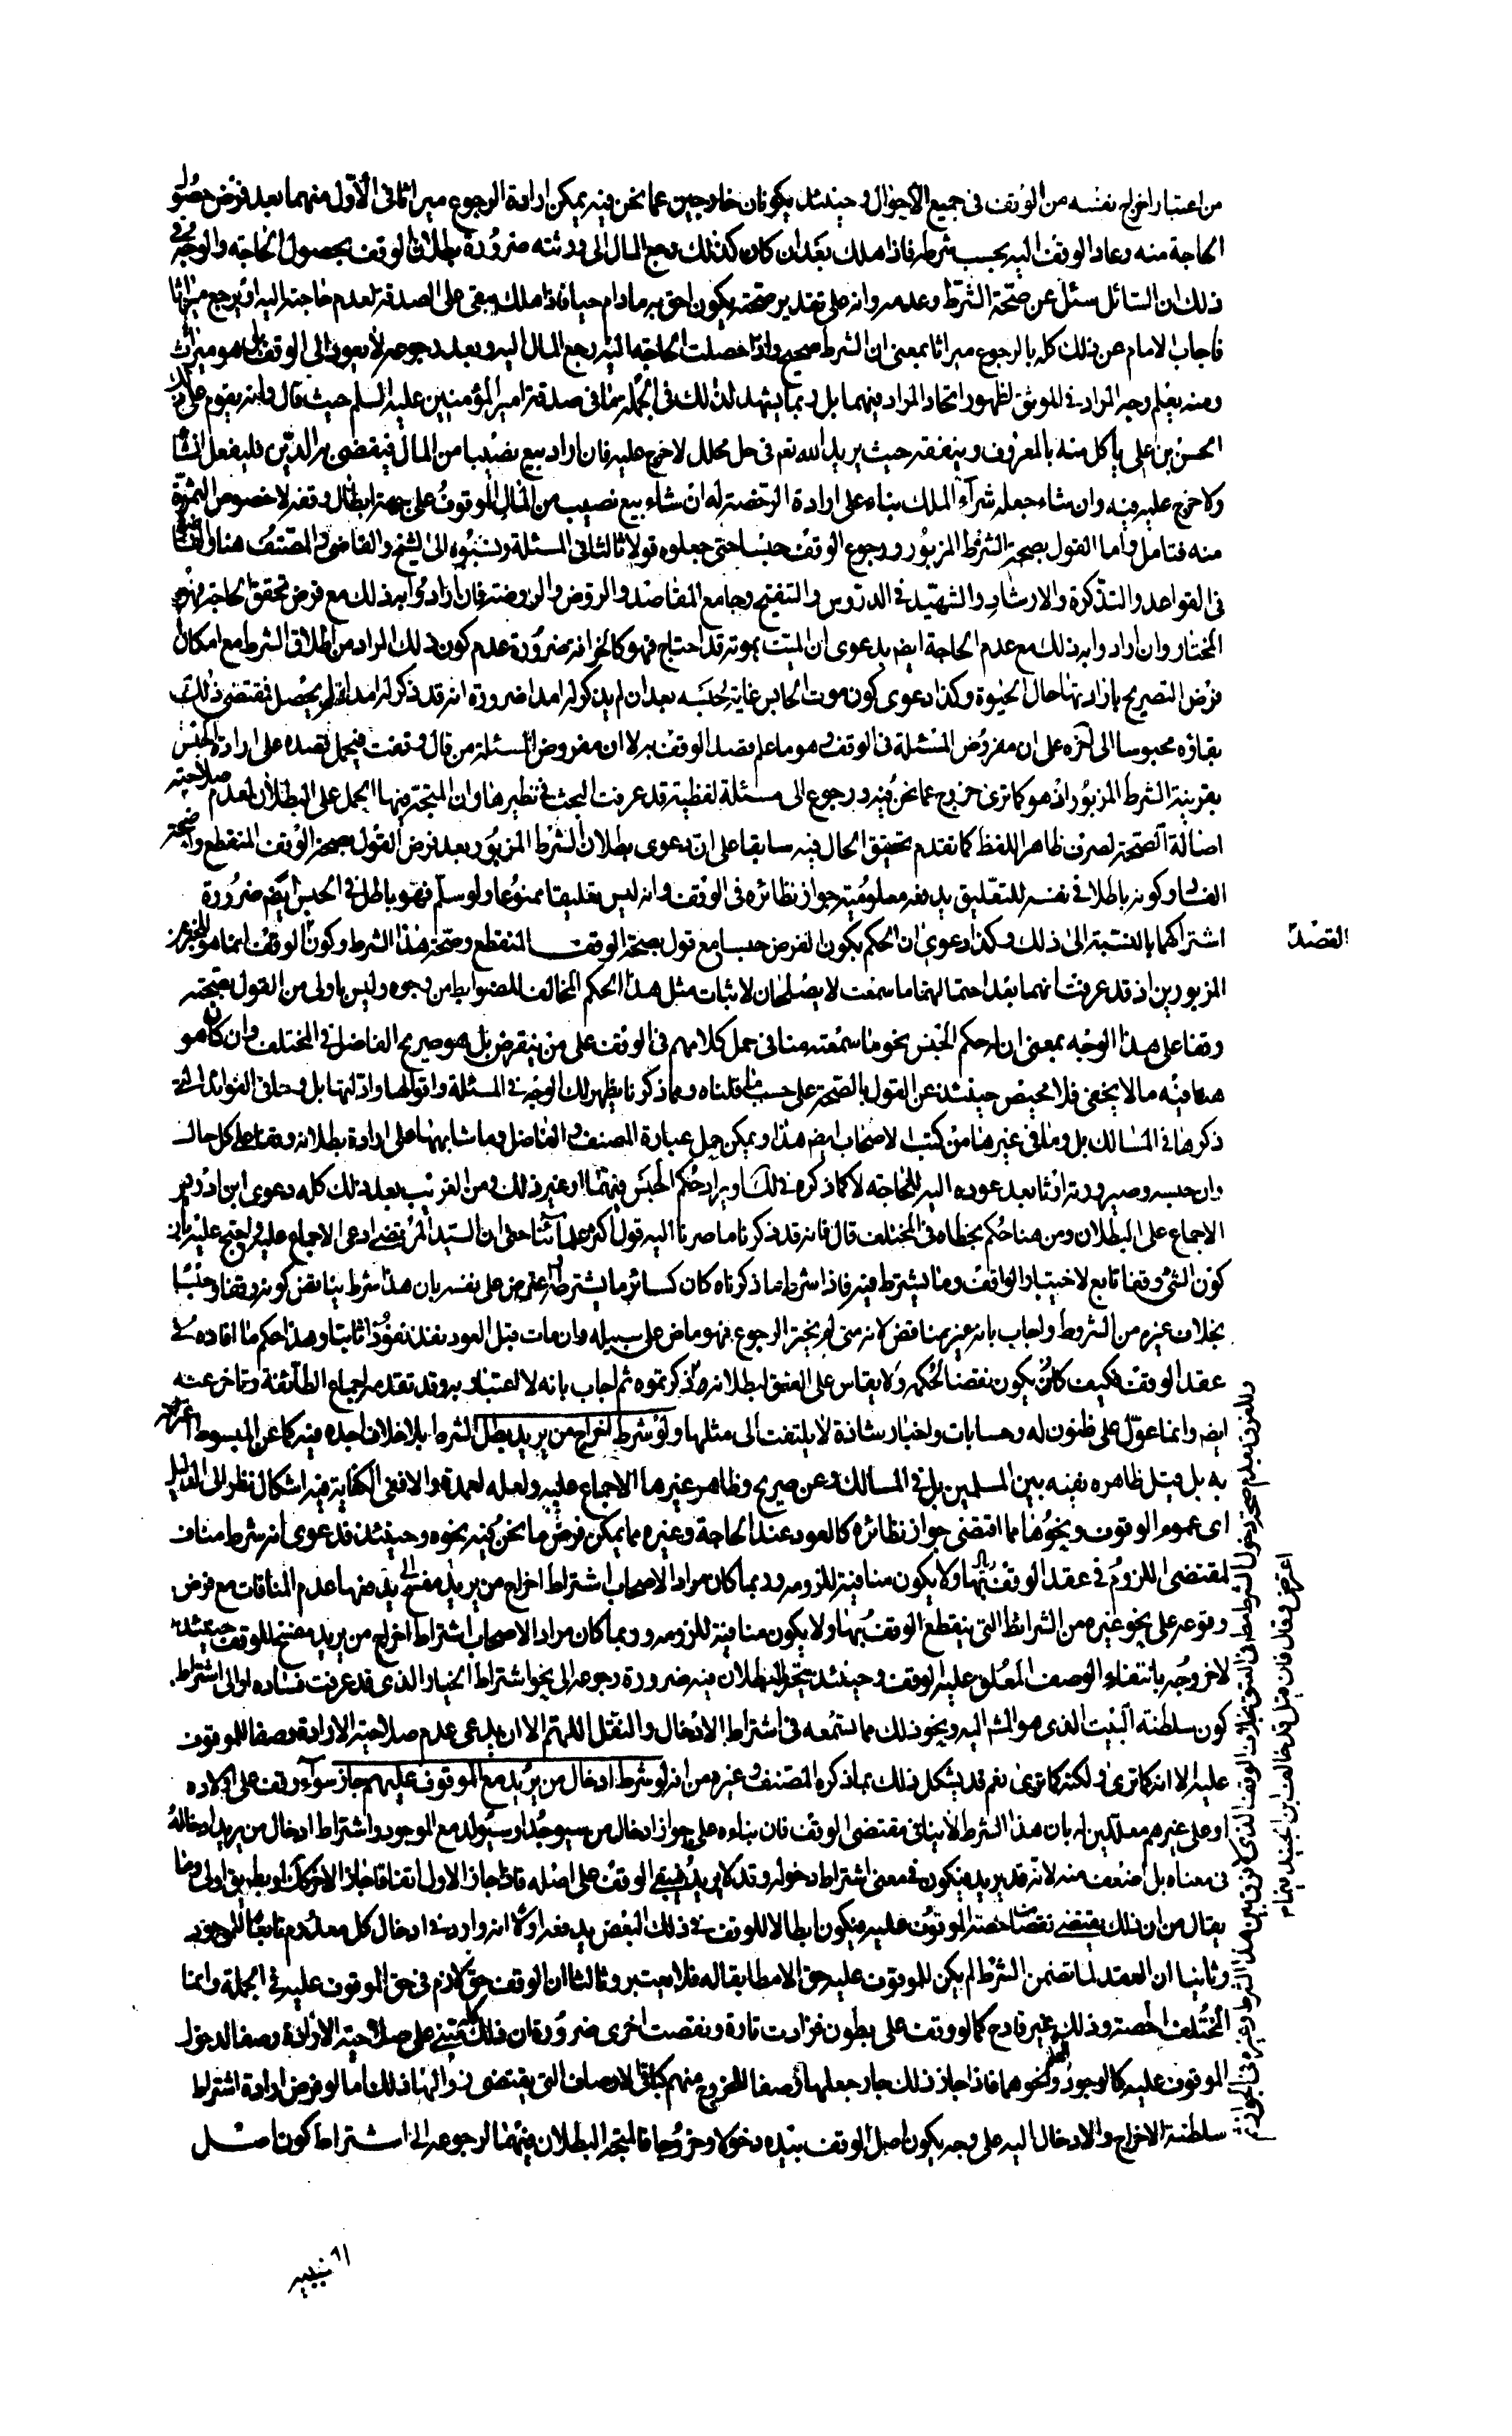 من اعتبار اخراج نفسه من الوقف فى جميع الاحوال وحينئذ يكونان خارجين عما نحن فيه يمكن ارادة الرجوع ميراثا فى الاول منهما بعد فرض حصول
الحاجة منه وعاد الوقف اليه بحسب شرطه فاذا هلك بعد ان كان كذلك رجع المال الى ورثته ضرورة بطلان الوقف بحصول الحاجة والوجه فى
ذلك ان السائل سئل عن صحة الشرط وعدمه وانه على تقدير صحته يكون احق به مادام حيا فاذا هلك يبقى على الصدقة لعدم حاجته اليه او يرجع ميراثا
فاجاب الامام عن ذلك كله بالرجوع ميراثا بمعنى ان الشرط صحيح واذا حصلت الحاجة اليه رجع المال اليه وبعد رجوعه لا يعود الى الوقف بل هو ميراث
ومنه يعلم وجه المراد فى الموثق لظهور اتحاد المراد فيهما بل ربما يشهد لذلك فى الجملة ما فى صدقة امير المؤمنين عليه السلم حيث قال وانه يقوم على ذلك
الحسن بن على ياكل منه بالمعروف وينفقه حيث يريد الله نعم فى حل محلل لا حرج عليه فان اراد يبيع نصيبا من المال فيقضى به الدين فليفعل انشاء
ولا حرج عليه فيه وان شاء جعله شراء الملك بناء على ارادة الرخصة له ان شاء بيع نصيب من المال الموقوف على جهة ابطال وقفه لا خصوص الثمرة
منه فتامل واما القول بصحة الشرط المزبور ورجوع الوقف حبسا حتى جعلوه قولا ثالثا فى المسئلة ونسبوه الى الشيخ والقاضى والمصنف هنا والفاضل
فى القواعد والتذكرة والارشاد والشهيد فى الدروس والتنقيح وجامع المقاصد والروض والروضة فان ارادوا به ذلك مع فرض تحقق الحاجة فهو
المختار وان ارادوا به ذلك مع عدم الحاجة ايضا بدعوى ان الميت بموته قد احتاج فهو كالخرافة ضرورة عدم كون ذلك المراد من اطلاق الشرط مع امكان
فرض التصريح بارادتها حال الحيوة وكذا دعوى كون موت الحابس غاية لحبسه بعد ان لم يذكر له امدا ضرورة انه قد ذكر له امدا فلم يحصل فمقتضى ذلك
بقاؤه محبوسا الى اخره على ان مفروض المسئلة فى الوقف وهو ما علم قصد الوقف به لا ان مفروض المسئلة من قال وقفت فيحمل قصده على ارادة الحبس
بقرينة الشرط المزبور اذ هو كما ترى خروج عما نحن فيه ورجوع الى مسئلة لفظية قد عرفت البحث فى نظيرها وان المتجه فيها الحمل على البطلان لعدم صلاحية
اصالة الصحة لصرف ظاهر اللفظ كما تقدم تحقيق الحال فيه سابقا على ان دعوى بطلان الشرط المزبور بعد فرض القول بصحة الوقف المنقطع واضحة
الفساد وكونه باطلا فى نفسه للتعليق يدفعه معلومية جواز نظائره فى الوقف وانه ليس تعليقا ممنوعا ولو سلم فهو باطل فى الحبس ايضا ضرورة
اشتراكهما بالنسبة الى ذلك وكذا دعوى ان الحكم بكون الفرض حبسا مع قول بصحة الوقف المنقطع وصحة هذا الشرط وكون الوقف انما هو للخبرين
القصد
المزبورين اذ قد عرفت انهما بعد احتمالهما ما سمعت لا يصلحان لاثبات مثل هذا الحكم المخالف للضوابط من وجوه وليس باولى من القول بصحته
وقفا على هذا الوجه بمعنى ان له حكم الحبس نحو ما سمعته منا فى حمل كلامهم فى الوقف على من ينقرض بل هو صريح الفاضل فى المختلف وان كان هو
معا فيه ما لا يخفى فلا محيص حينئذ عن القول بالصحة على حسب ما قلناه ومما ذكرنا يظهر لك الوجه فى المسئلة واقوالها وادلتها بل وما فى الفوائد التى
ذكرها فى المسالك بل وما فى غيرها من كتب الاصحاب ايضا هذا ويمكن حمل عبارة المصنف والفاضل وما شابهها على ارادة بطلانه وقفا على كل حال
وان حبسه وصيرورته ارثا بعد عوده اليه للحاجة لا كما ذكره فى لك او يراد حكم الحبس فيهما او غير ذلك ومن الغريب بعد ذلك كله دعوى ابن ادريس
الاجماع على البطلان ومن هنا حكم بخطاه فى المختلف قال فانه قد ذكرنا ما صرنا اليه قول اكثر علمائنا حتى ان السيد المرتضى ادعى الاجماع عليه واحتج عليه بان
كون الشئ وقفا تابع لاختيار الواقف وما يشترط فيه فاذا شرط ما ذكرناه كان كسائر ما يشترطه ثم اعترض على نفسه بان هذا شرط يناقض كونه وقفا وحبسا
بخلاف غيره من الشروط واجاب بانه غير مناقض لانه متى لم يختر الرجوع فهو ماض على سبيله وان مات قبل العود نفذ نفوذا ثابتا وهذا حكم ما افاده
عقد الوقف فكيف يكون نقضا لحكمه ولا يقاس على العتق لبطلانه ثم اجاب بانه لا اعتبار به وقد تقدمه اجماع الطائفة وتاخر عنه
ايضا وانما عول على ظنون له وحسابات واخبار شاذة لا يلتفت الى مثلها ولو شرط اخراج من يريد بطل الشرط بلا خلاف اجده فيه كما عن المبسوط
به بل قيل ظاهره نفيه بين المسلمين بل فى المسالك وعن صريح وظاهر غيرها الاجماع عليه ولعله لعمدة والا ففى الكفاية فيه اشكال نظر الى الدليل
اى عموم الوقوف ونحوها مما اقتضى جواز نظائره كالعود عند الحاجة وغيره مما يمكن فرض ما نحن فيه نحوه وحينئذ فدعوى انه شرط مناف
لمقتضى اللزوم فى عقد الوقف ولا يكون منافية للزومه وربما كان مراد الاصحاب اشتراط اخراج من يريد مع فرض
وقوعه على نحو غيره من الشرائط التى ينقطع الوقف بها ولا يكون منافية للزومه وربما كان مراد الاصحاب اشتراط اخراج من يريد للوقف حينئذ
لا خروجه بانتفاء الوصف المعلق عليه الوقف وحينئذ يتجه البطلان فيه ضرورة رجوعه الى نحو اشتراط الخيار الذى قد عرفت فساده او الى اشتراط
كون سلطنة البيت الذى هو اليه ونحو ذلك مما ستمعه فى اشتراط الادخال والنقل اللهم الا ان يدعى عدم صلاحية الارادة وصفا للموقوف
عليه الا انه كما ترى ولكنه كما ترى نعم قد يشكل ذلك بما ذكره المصنف وغيره من انه لو شرط ادخال من يريد مع الموقوف عليهم جاز سواء وقف على اولاده
او على غيرهم معللين له بان هذا الشرط لا ينافى مقتضى الوقف فان بناءه على جواز ادخال من سيوجد او سيولد مع الموجود واشتراط ادخال من يريد ادخاله
فى معناه بل اضعف منه لانه قد يريد فيكون فى معنى اشتراط دخوله وقد لا يريد فيبقى الوقف على اصله فاذا جاز الاول اتفاقا جاز الاخر كذلك او بطريق اولى وما
يقال من ان ذلك يقتضى نقصان حصة الموقوف عليه فيكون ابطالا للوقف فى ذلك البعض يدفعه اولا انه وارد فى ادخال كل معدوم تابعا للموجود
وثانيا ان العقد لما تضمن الشرط لم يكن للموقوف عليه حق الا مطابقا له فلا يعتبر وثالثا ان الوقف حق لازم فى حق الموقوف عليه فى الجملة وانما
المختلف الحصة وذلك غير قادح كما لو وقف على بطون فزادت تارة ونقصت اخرى ضرورة ان ذلك مبتنى على صلاحية الارادة وصفا لدخول
الموقوف عليه كالوجود ونحوهما فاذا جاز ذلك جاز جعلها وصفا للخروج منهم كباقى الاوصاف التى يقتضى زوالها ذلك اما لو فرض ارادة اشتراط
سلطنة الاخراج والادخال اليه على وجه يكون اصل الوقف بيده دخولا وخروجا فالمتجه البطلان فيهما لرجوعه الى اشتراط كون اصل
اعترض وقال فان قيل قد خالف ابن الجنيد